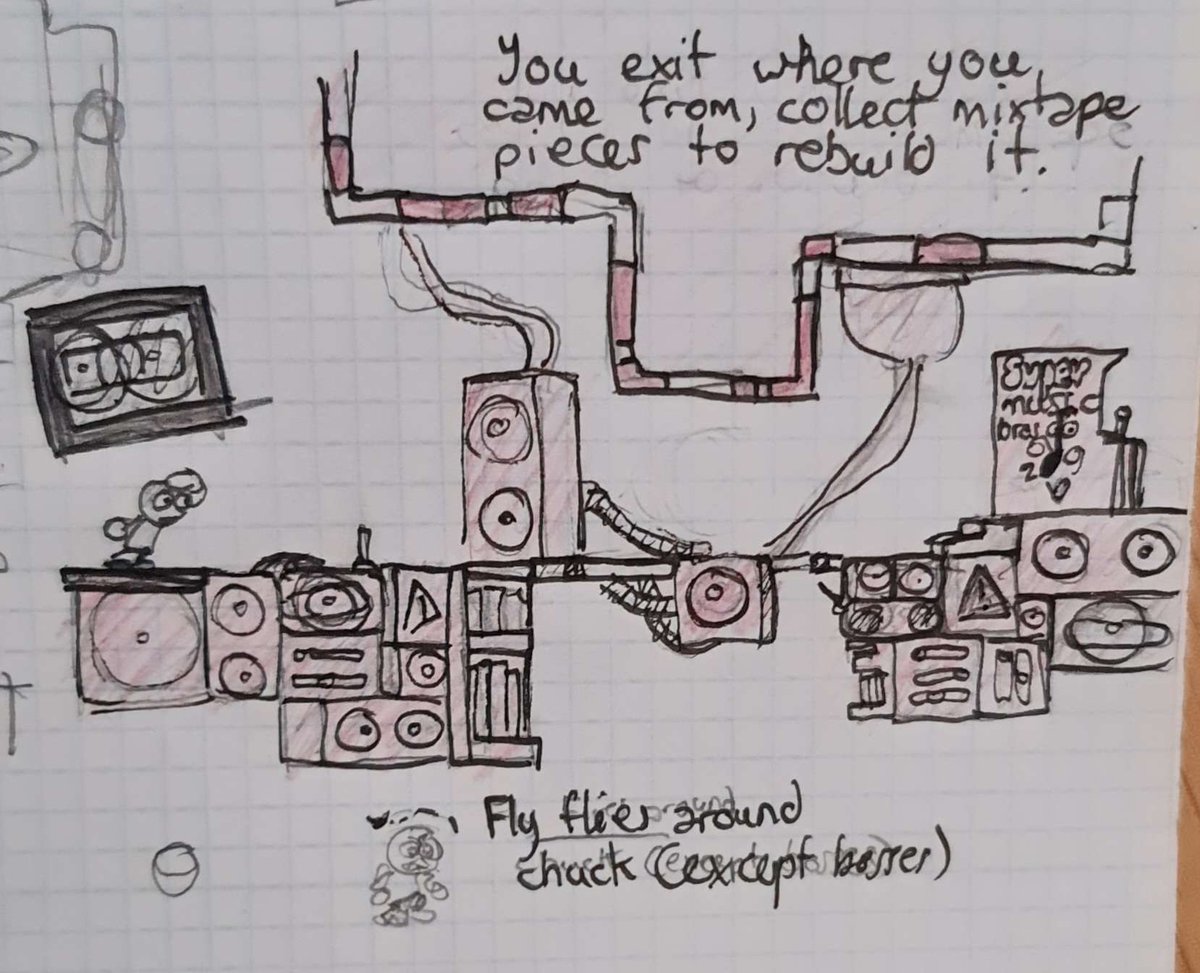 You exit where you,
came from, collect mixtape
pieces to rebuild it.
Super
music
bros
Fly flies around
chuck (except bosses)